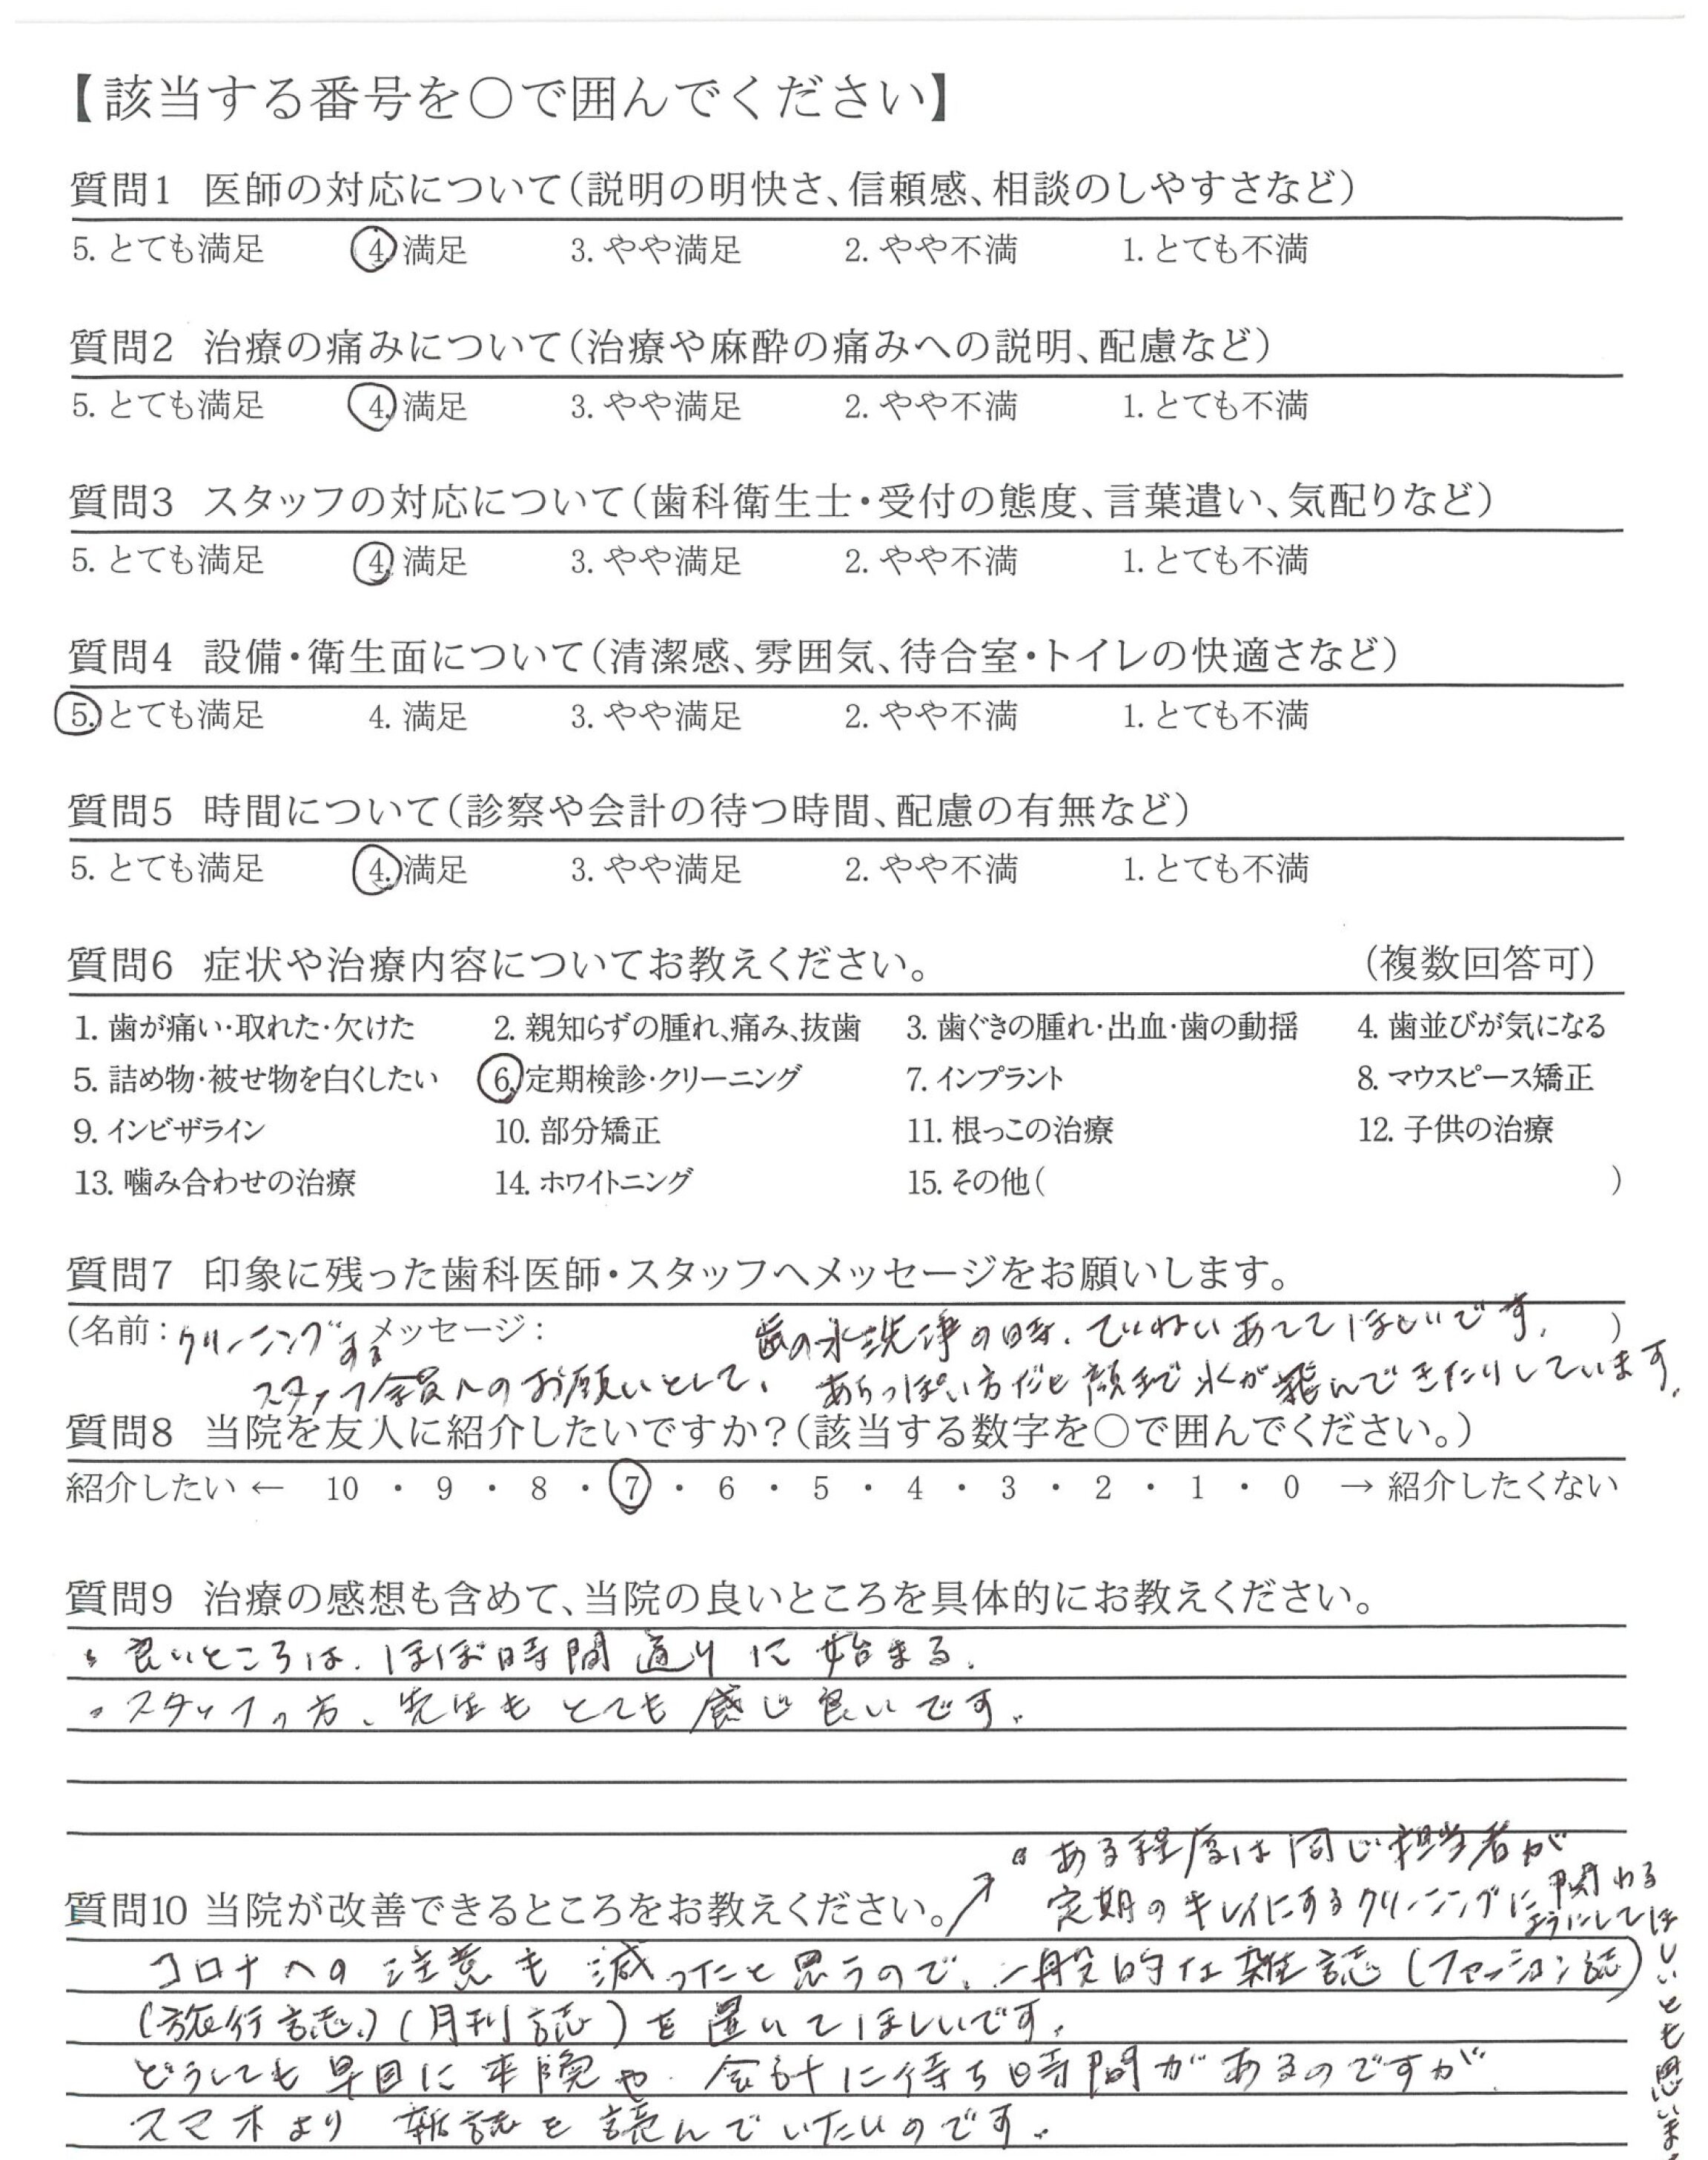 【該当する番号を○で囲んでください】
質問1 医師の対応について（説明の明快さ、信頼感、相談のしやすさなど）
5. とても満足 4. 満足 3. やや満足 2. やや不満 1. とても不満
質問2 治療の痛みについて（治療や麻酔の痛みへの説明、配慮など）
5. とても満足 4. 満足 3. やや満足 2. やや不満 1. とても不満
質問3 スタッフの対応について（歯科衛生士・受付の態度、言葉遣い、気配りなど）
5. とても満足 4. 満足 3. やや満足 2. やや不満 1. とても不満
質問4 設備・衛生面について（清潔感、雰囲気、待合室・トイレの快適さなど）
5. とても満足 4. 満足 3. やや満足 2. やや不満 1. とても不満
質問5 時間について（診察や会計の待つ時間、配慮の有無など）
5. とても満足 4. 満足 3. やや満足 2. やや不満 1. とても不満
質問6 症状や治療内容についてお教えください。 （複数回答可）
1. 歯が痛い・取れた・欠けた 2. 親知らずの腫れ、痛み、抜歯 3. 歯ぐきの腫れ・出血・歯の動揺 4. 歯並びが気になる
5. 詰め物・被せ物を白くしたい 6. 定期検診・クリーニング 7. インプラント 8. マウスピース矯正
9. インビザライン 10. 部分矯正 11. 根っこの治療 12. 子供の治療
13. 噛み合わせの治療 14. ホワイトニング 15. その他（ ）
質問7 印象に残った歯科医師・スタッフへメッセージをお願いします。
（名前：クリーニングする メッセージ： 歯の水洗浄の時、ていねいあててほしいです。 ）
スタッフ全員へのお願いとして、 あらっぽい方だと顔まで水が飛んできたりしています。
質問8 当院を友人に紹介したいですか？（該当する数字を○で囲んでください。）
紹介したい ← 10 ・ 9 ・ 8 ・ 7 ・ 6 ・ 5 ・ 4 ・ 3 ・ 2 ・ 1 ・ 0 → 紹介したくない
質問9 治療の感想も含めて、当院の良いところを具体的にお教えください。
・良いところは、ほぼ時間通りに始まる。
・スタッフの方、先生もとても感じ良いです。
質問10 当院が改善できるところをお教えください。
・ある程度は同じ担当者が
定期のキレイにするクリーニングに関わる
ようにしてほしいとも思いま
コロナへの注意も減ったと思うので、一般的な雑誌（ファッション誌）
（旅行誌）（月刊誌）を置いてほしいです。
どうしても早目に来院や会計に待ち時間があるのですが
スマホより雑誌を読んでいたいのです。